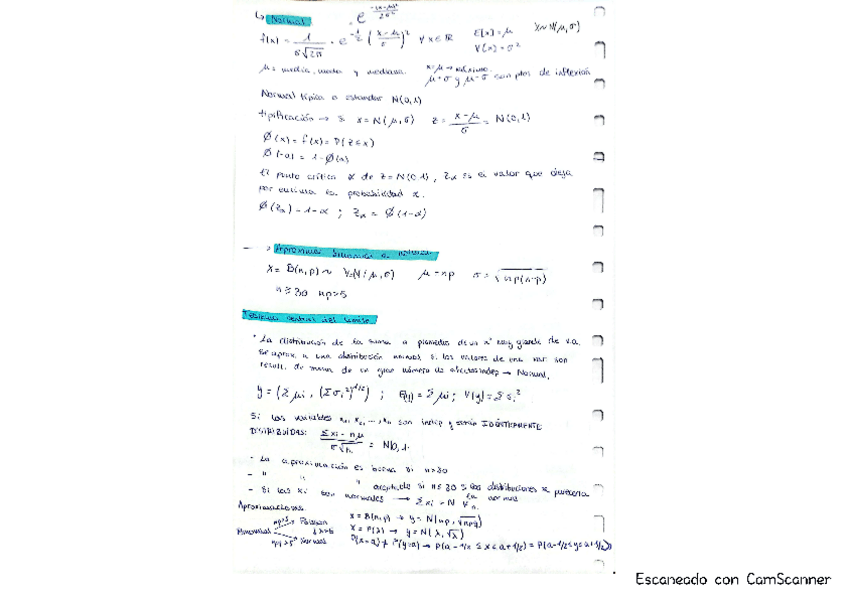 ↳ Normal
e^{-(x-μ)²/2σ²}
f(x) = 1/(σ√2π) · e^{-1/2 ((x-μ)/σ)²} ∀x∈ℝ E[x]=μ X∼N(μ,σ)
V(x)=σ²
μ = media, moda y mediana. x=μ → máximo.
μ+σ y μ-σ son ptos de inflexión
Normal típica o estandar N(0,1)
tipificación → Si x=N(μ,σ) z = (x-μ)/σ = N(0,1)
Ø(x) = f(x) = P(Z≤x)
Ø(-a) = 1-Ø(a)
El punto crítico α de z=N(0,1), Zα es el valor que deja
por encima la probabilidad α.
Ø(Zα) = 1-α ; Zα = Ø(1-α)
Aproximac Binomial a normal
x = B(n,p) ∼ Y=N(μ,σ) μ=np σ=√np(1-p)
n≥30 np>5
Teorema central del límite
· La distribución de la suma o promedio de un nº muy grande de v.a.
se aprox. a una distribución normal. Si los valores de una var. son
result. de suma de un gran número de efectos indep → Normal.
y = (Σμi, (Σσi²)^{1/2}) ; E(y) = Σμi ; V(y) = Σσi²
Si las variables x₁, x₂, ..., xn son indep y están IDÉNTICAMENTE
DISTRIBUIDAS: (Σxi - nμ)/(σ√n) = N(0,1)
- La aproximación es buena si n>30
- " " aceptable si n≤30 si las distribuciones se parecen a
la normal
- Si las xi son normales → Σxi = N ∀n.
Aproximaciones
Binomial np>5 Poisson λ>5
np>5 Normal
x = B(n,p) → y = N(np, √npq)
x = P(λ) → y = N(λ, √λ)
P(x=a) ≠ P(y=a) → P(a-1/2 ≤ x ≤ a+1/2) = P(a-1/2≤y≤a+1/2)
Escaneado con CamScanner